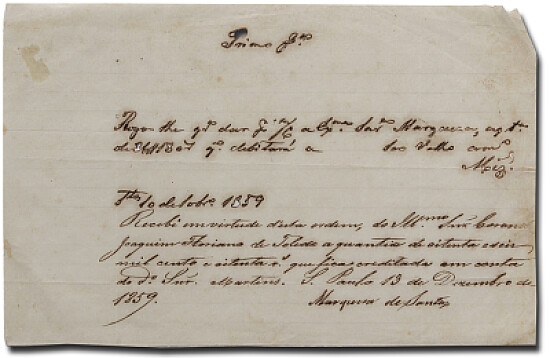 Primo Jm.º
Rogo-lhe q.e dar p.r m/c a Ex.ma Snr.a Marqueza, a q.tia
de q.e debitará a seo Velho am.º
S.tos 10 de Dobr.º 1859
Recebi em virtude desta ordem, do Ill.mo Snr. Coronel
Joaquim Floriano de Toledo a quantia de oitenta e seis
mil cento e oitenta r.s que fica creditada em conta
do d.º Snr. Martins. S. Paulo 13 de Dezembro de
1859. Marqueza de Santos